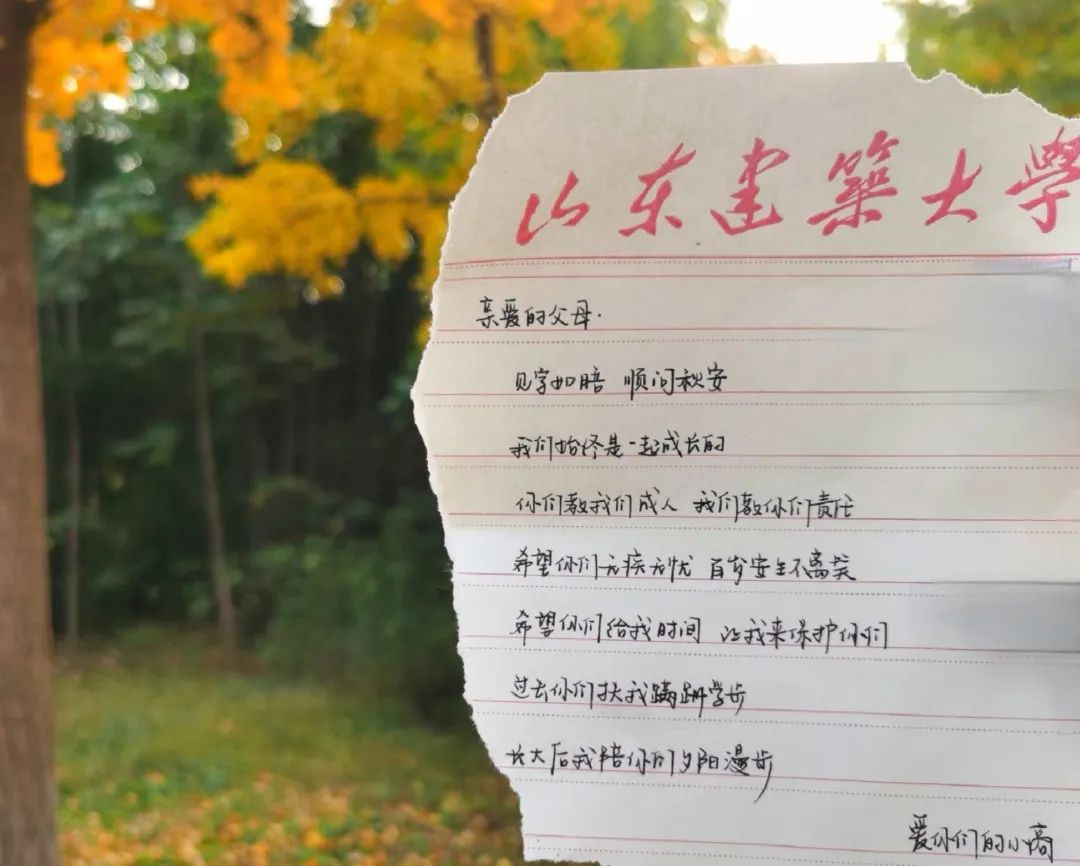 山东建築大學
亲爱的父母.
见字如晤 顺问秋安
我们始终是一起成长的
你们教我们成人 我们教你们责任
希望你们无疾无忧 百岁安生不离笑
希望你们给我时间 让我来保护你们
过去你们扶我蹒跚学步
长大后我陪你们夕阳漫步
爱你们的小高